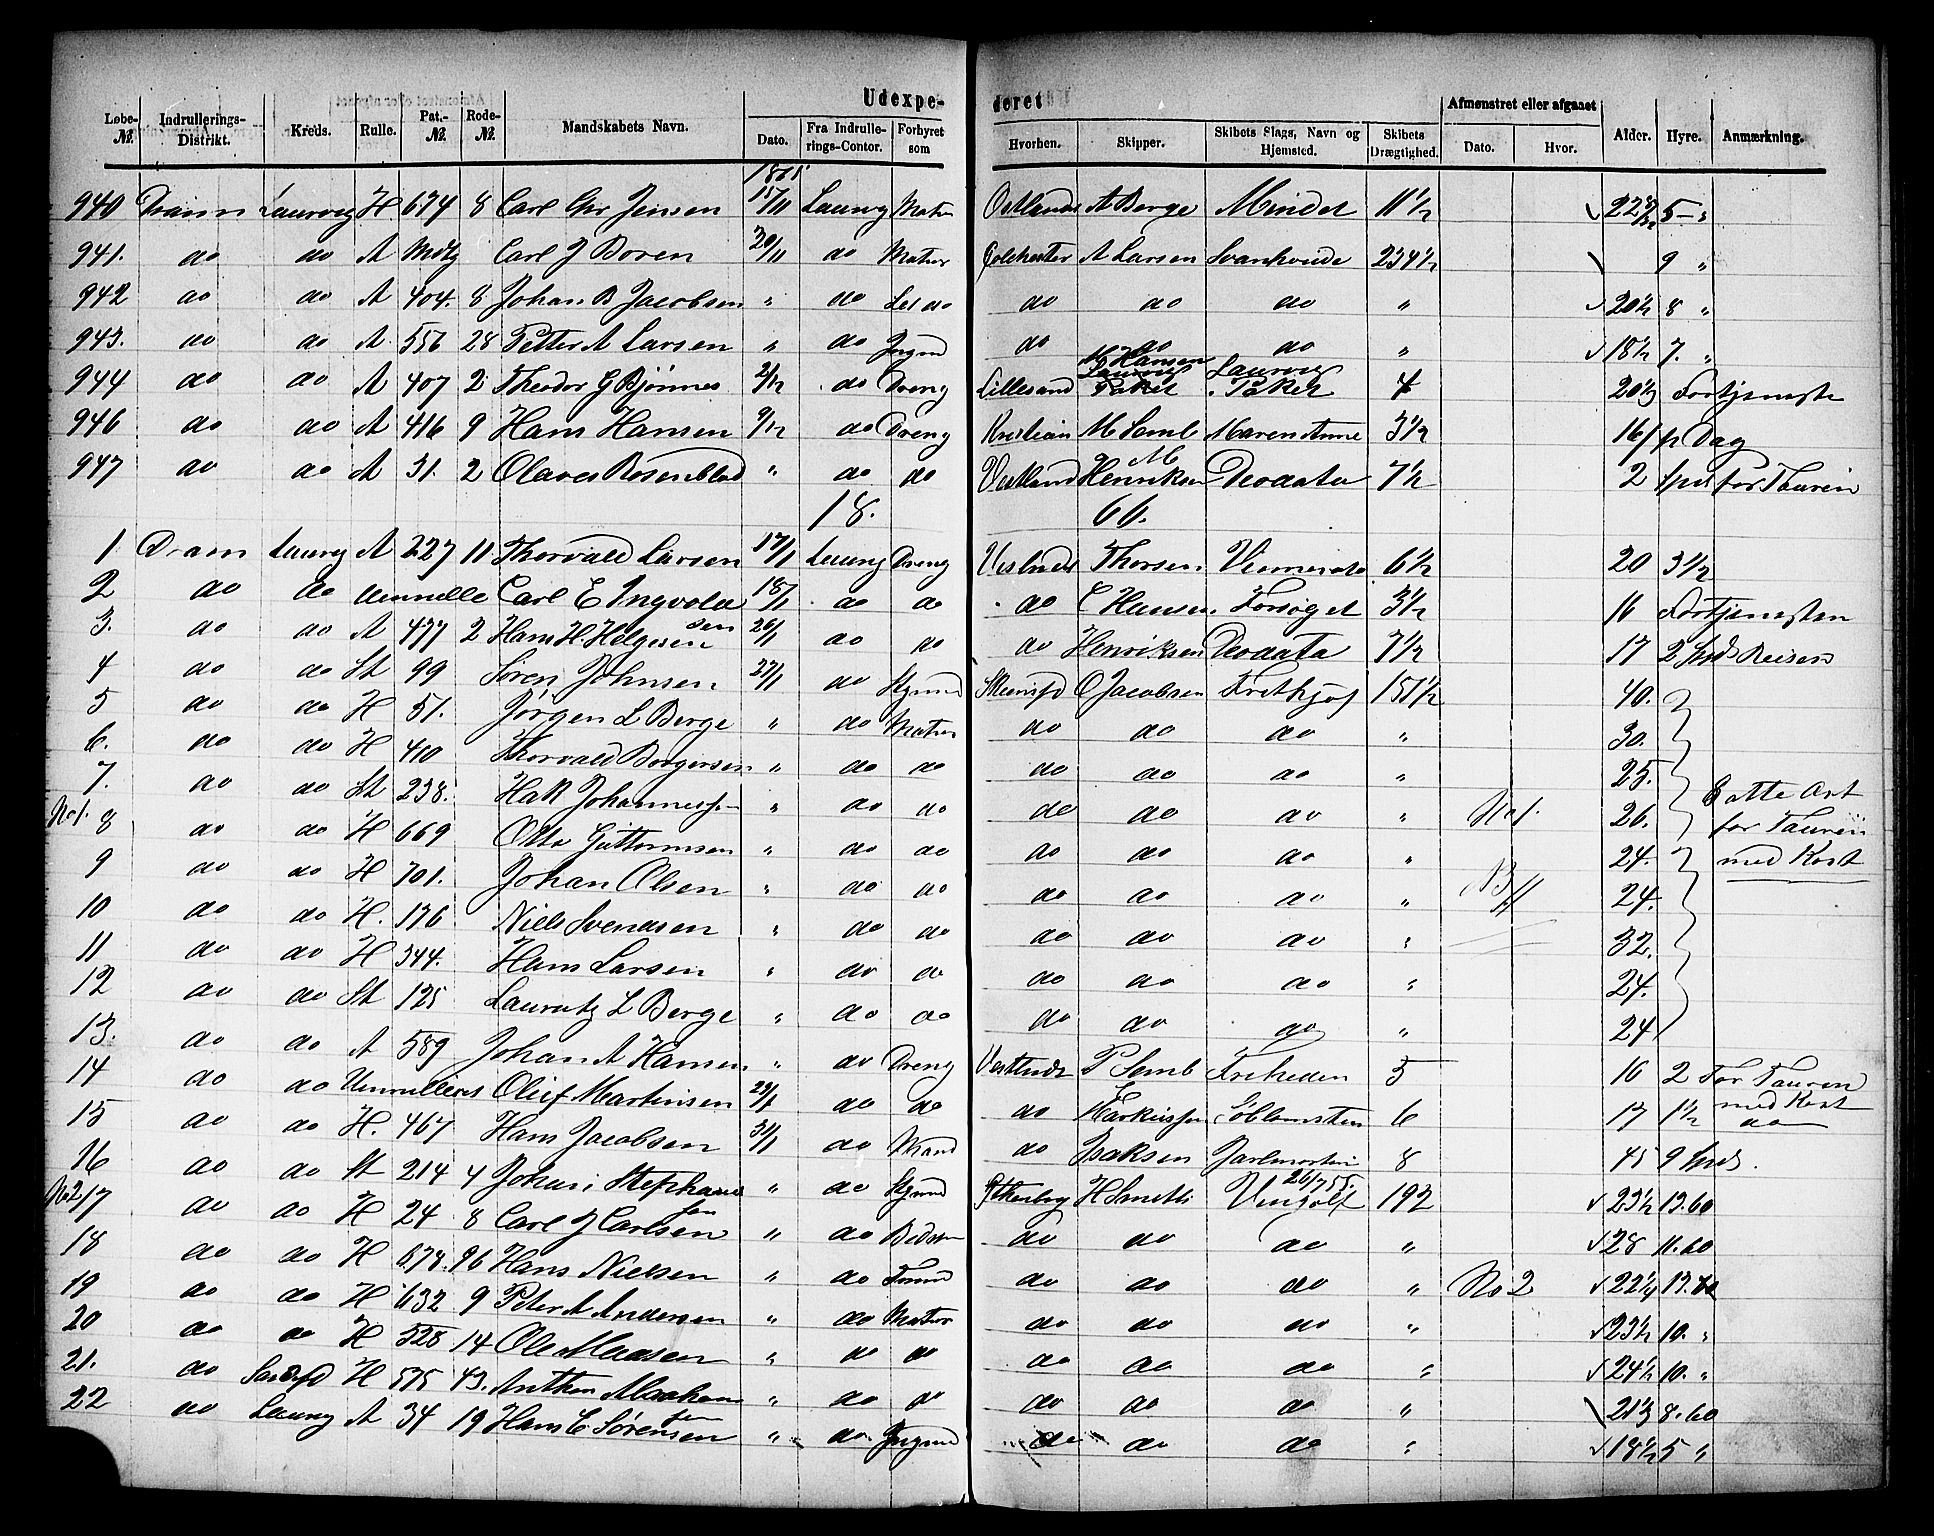 Udexpe- deret
Løbe-№. Indrullerings-Distrikt. Kreds. Rulle. Pat.-№. Rode-№. Mandskabets Navn. Dato. Fra Indrullerings-Contor. Forhyret som Hvorhen. Skipper. Skibets Slags, Navn og Hjemsted. Skibets Drægtighed. Afmønstret eller afgaaet Dato. Hvor. Alder. Hyre. Anmærkning.
1865
940 Dramn Laurvig H 674 8 Carl Chr Jensen 15/11 Laurvg Matr A Berge Mindet 11 1/2 5 "
941. do do A Carl J Boren 20/11 do Matros Colchester A Larsen Svanhvide 234 1/2 9 "
942 do do A 404. 8 Johan B Jacobsen " do Let do do do do " 20 1/2 8 "
943. do do A 556 28 Petter A Larsen " do Jngmd do do do " 18 1/2 7. "
944 do do A 407 2 Theodor G Bjönnes 2/12 do Dreng Lillesand M Hansen Laurvig Paket 4 Fortjeneste
946 do do A 416 9 Hans Hansen 9/12 do Dreng Kristian M Semb Maren Anne 3 1/2 16 1/p Dag
947 do do A 31. 2 Olaves Rosenblad " do do Vestland M Henriksen Deodata 7 1/2 2 for Touren
18. 66.
1 Dram Laurvg A 227 11 Thorvald Larsen 17/1 Laurvg Dreng Thorsen 6 1/2 20 3 1/2
2 do do Uenrulle Carl E Ingvoldsen 18/1 do do do C Hansen Forsøget 3 1/2 16 Fortjenesten
3. do do A 477 2 Hans H. Helgesen 26/1 do do do Henriksen Deodata 7 1/2 17 2 Spds Reisen
4 do do St 99 Sören Johnsen 27/1 do Styrmd O Jacobsen Frithjof 151 1/2 40.
5 do do H 51. Jørgen L Berge " do Matros do do do " 30.
6. do do H 410 Thorvald Borgersen " do do do do do " 25.
7. do do St 238. Hak Johanness " do do do do do " No 1. 26. for Touren
No 1. 8 do do H 669 Otto Guttormsen " do do do do do " 24. med Kost
9 do do H 701. Johan Olsen " do do do do do " 24.
10 do do H. 176 Niels Svendsen " do do do do do " 32.
11 do do H 344. Hans Larsen " do do do do do " 24.
12 do do St 125 Lauritz L Berge " do do do do do " 24
13. do do A 589 Johan A Hansen " do Dreng P Semb Friheden 5 16 2 For Touren med Kost
14 do do Uenrulleres Oluf Martinsen 29/1 do do do 6 17 1 1/2 do
15 do do H. 467 Hans Jacobsen 31/1 do Mand do Isaksen 8 45 9 Spds.
16 do do St 214 4 Johan Stephansen " do Styrmd H Smith Vingolf 192 23 1/2 13.60
No 2 17 do do H 24 8 Carl J Carlsen " do do do do " 28 11.60
18 do do H 678. 96 Hans Nielsen " do do do do " No 2 22 1/4 13.60
19 do do H 632 9 Peter A Andersen " do Matros do do do " 23 1/2 10. "
20 do do H 528 14 Ole Madsen " do do do do do " 24 1/2 10. "
21. do H 575 43. Anthon " do do do do do " 21 1/2 8.60
22 do Laurvg A 34 19 Hans C Sörensen " do Jngmd do do do " 18 1/2 5 "